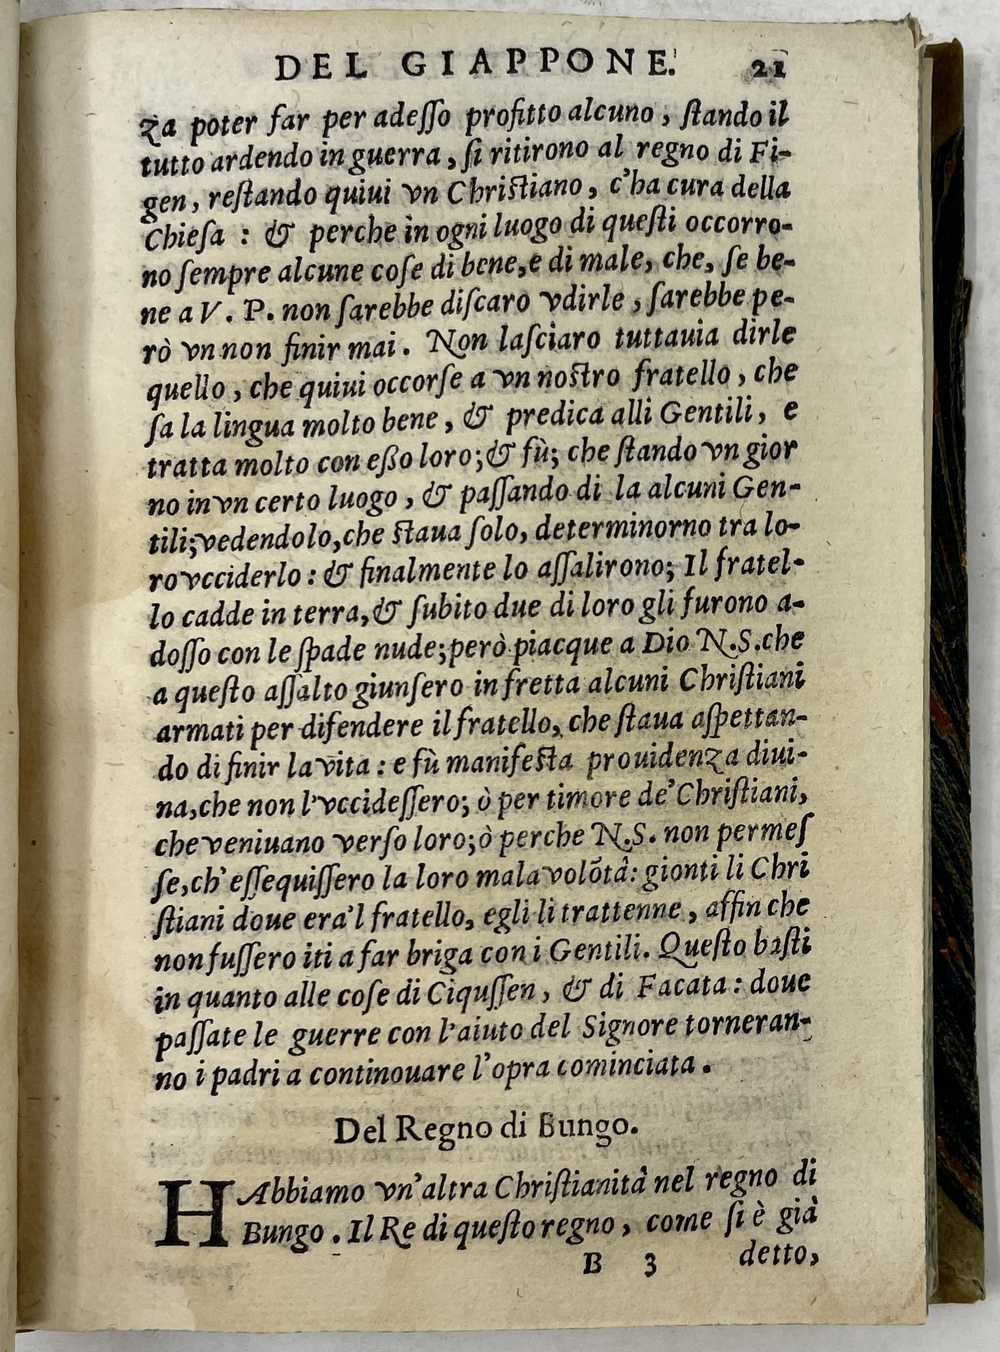 DEL GIAPPONE. 21
za poter far per adeſſo profitto alcuno, ſtando il
tutto ardendo in guerra, ſi ritirono al regno di Fi-
gen, reſtando quiui vn Chriſtiano, c'ha cura della
Chieſa : & perche in ogni luogo di queſti occorro-
no ſempre alcune coſe di bene, e di male, che, ſe be-
ne a V. P. non ſarebbe diſcaro vdirle, ſarebbe pe-
rò vn non finir mai. Non laſciaro tuttauia dirle
quello, che quiui occorſe a vn noſtro fratello, che
ſa la lingua molto bene, & predica alli Gentili, e
tratta molto con eßo loro; & fù; che ſtando vn gior
no in vn certo luogo, & paſſando di la alcuni Gen-
tili; vedendolo, che ſtaua ſolo, determinorno tra lo-
ro vcciderlo : & finalmente lo aſſalirono; Il fratel-
lo cadde in terra, & ſubito due di loro gli furono a-
doſſo con le ſpade nude; però piacque a Dio N.S. che
a queſto aſſalto giunſero in fretta alcuni Chriſtiani
armati per difendere il fratello, che ſtaua aſpettan-
do di finir la vita : e fù manifeſta prouidenza diui-
na, che non l'vccideſſero; ò per timore de' Chriſtiani,
che veniuano verſo loro; ò perche N.S. non permeſ
ſe, ch'eſſequiſſero la loro mala volõtà: gionti li Chri
ſtiani doue era'l fratello, egli li trattenne, affin che
non fuſſero iti a far briga con i Gentili. Queſto baſti
in quanto alle coſe di Ciquſſen, & di Facata : doue
paſſate le guerre con l'aiuto del Signore torneran-
no i padri a continouare l'opra cominciata.
Del Regno di Bungo.
HAbbiamo vn'altra Chriſtianità nel regno di
Bungo. Il Re di queſto regno, come ſi è già
B 3 detto,